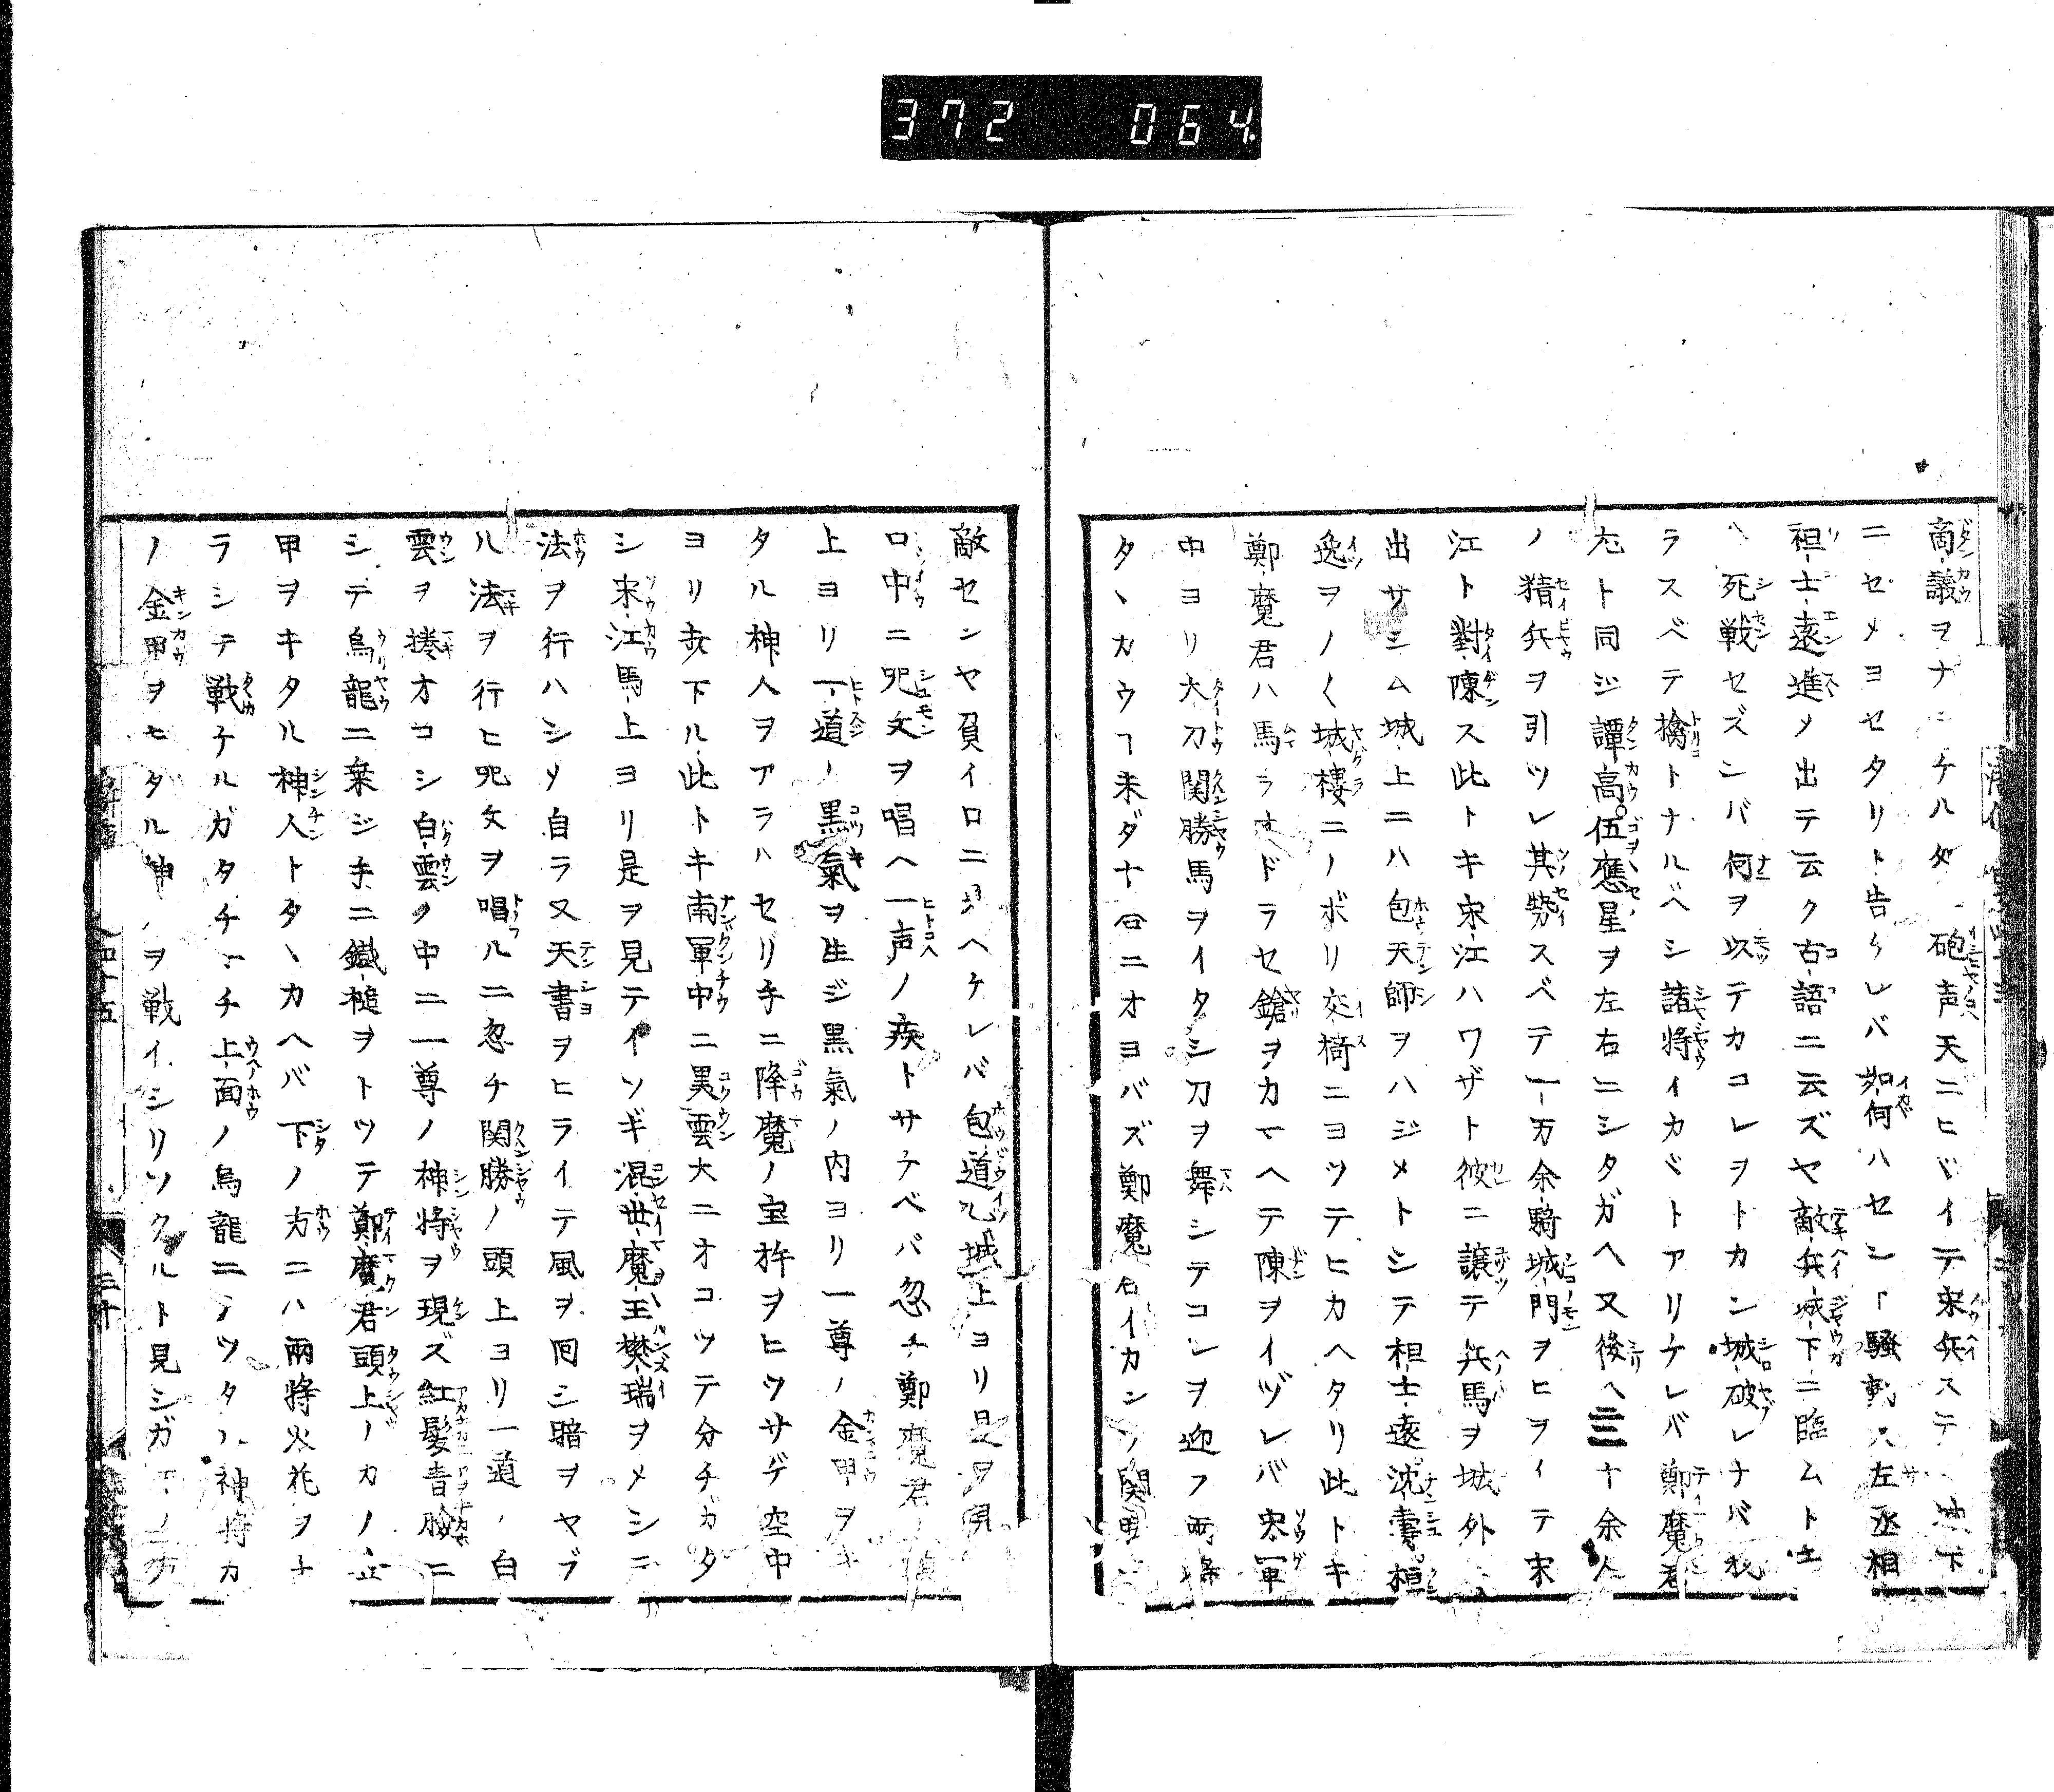 372 064
商議ヲナニケル処 砲声天ニヒヾイテ宋兵ステ 城下
ニセメヨセタリト告ケレバ如何ハセント騒動ス左丞相
祖士遠進ノ出テ云ク古語ニ云ズヤ敵兵城下ニ臨ムトキ
ハ死戦セズンバ何ヲ以テカコレヲトカン城破レナバ我
ラスベテ擒トナルベシ諸将イカヾトアリケレバ鄭魔君
尤ト同ジ譚高伍應星ヲ左右ニシタガヘ又後ヘ三十余人
ノ精兵ヲ引ツレ其勢スベテ一万余騎城門ヲヒライテ宋
江ト對陳ス此トキ宋江ハワザト彼ニ譲テ兵馬ヲ城外ヘ
出サシム城上ニハ包天師ヲハジメトシテ祖士遠沈壽桓
逸ヲノ〱城樓ニノボリ交椅ニヨツテヒカヘタリ此トキ
鄭魔君ハ馬ヲオドラセ鎗ヲカマヘテ陳ヲイヅレバ宋軍
中ヨリ大刀関勝馬ヲイタシ刀ヲ舞シテコレヲ迎フ両将
タヽカウヿ未ダ十合ニオヨバズ鄭魔君イカンソ関勝ニ
敵センヤ負イロニ見ヘケレバ包道乙城上ヨリ是ヲ見
口中ニ咒文ヲ唱ヘ一声ノ疾トサケベバ忽チ鄭魔君ノ頂
上ヨリ一道ノ黒氣ヲ生ジ黒氣ノ内ヨリ一尊ノ金甲ヲキ
タル神人ヲアラハセリ手ニ降魔ノ宝杵ヲヒツサゲ空中
ヨリ走下ル此トキ南軍中ニ黒雲大ニオコツテ分チカタ
シ宋江馬上ヨリ是ヲ見テイソギ混世魔王樊瑞ヲメシテ
法ヲ行ハシメ自ラ又天書ヲヒライテ風ヲ回シ暗ヲヤブ
ル法ヲ行ヒ咒文ヲ唱ルニ忽チ関勝ノ頭上ヨリ一道ノ白
雲ヲ捲オコシ白雲ノ中ニ一尊ノ神将ヲ現ズ紅髮青臉ニ
シテ烏龍ニ乗ジ手ニ鐵槌ヲトツテ鄭魔君頭上ノカノ金
甲ヲキタル神人トタヽカヘバ下ノ方ニハ兩将火花ヲチ
ラシテ戦ケルガタチマチ上面ノ烏龍ニノツタル神将カ
ノ金甲ヲキタル神人ヲ戦イシリソクルト見シガ下ノ方
八四十五
三十